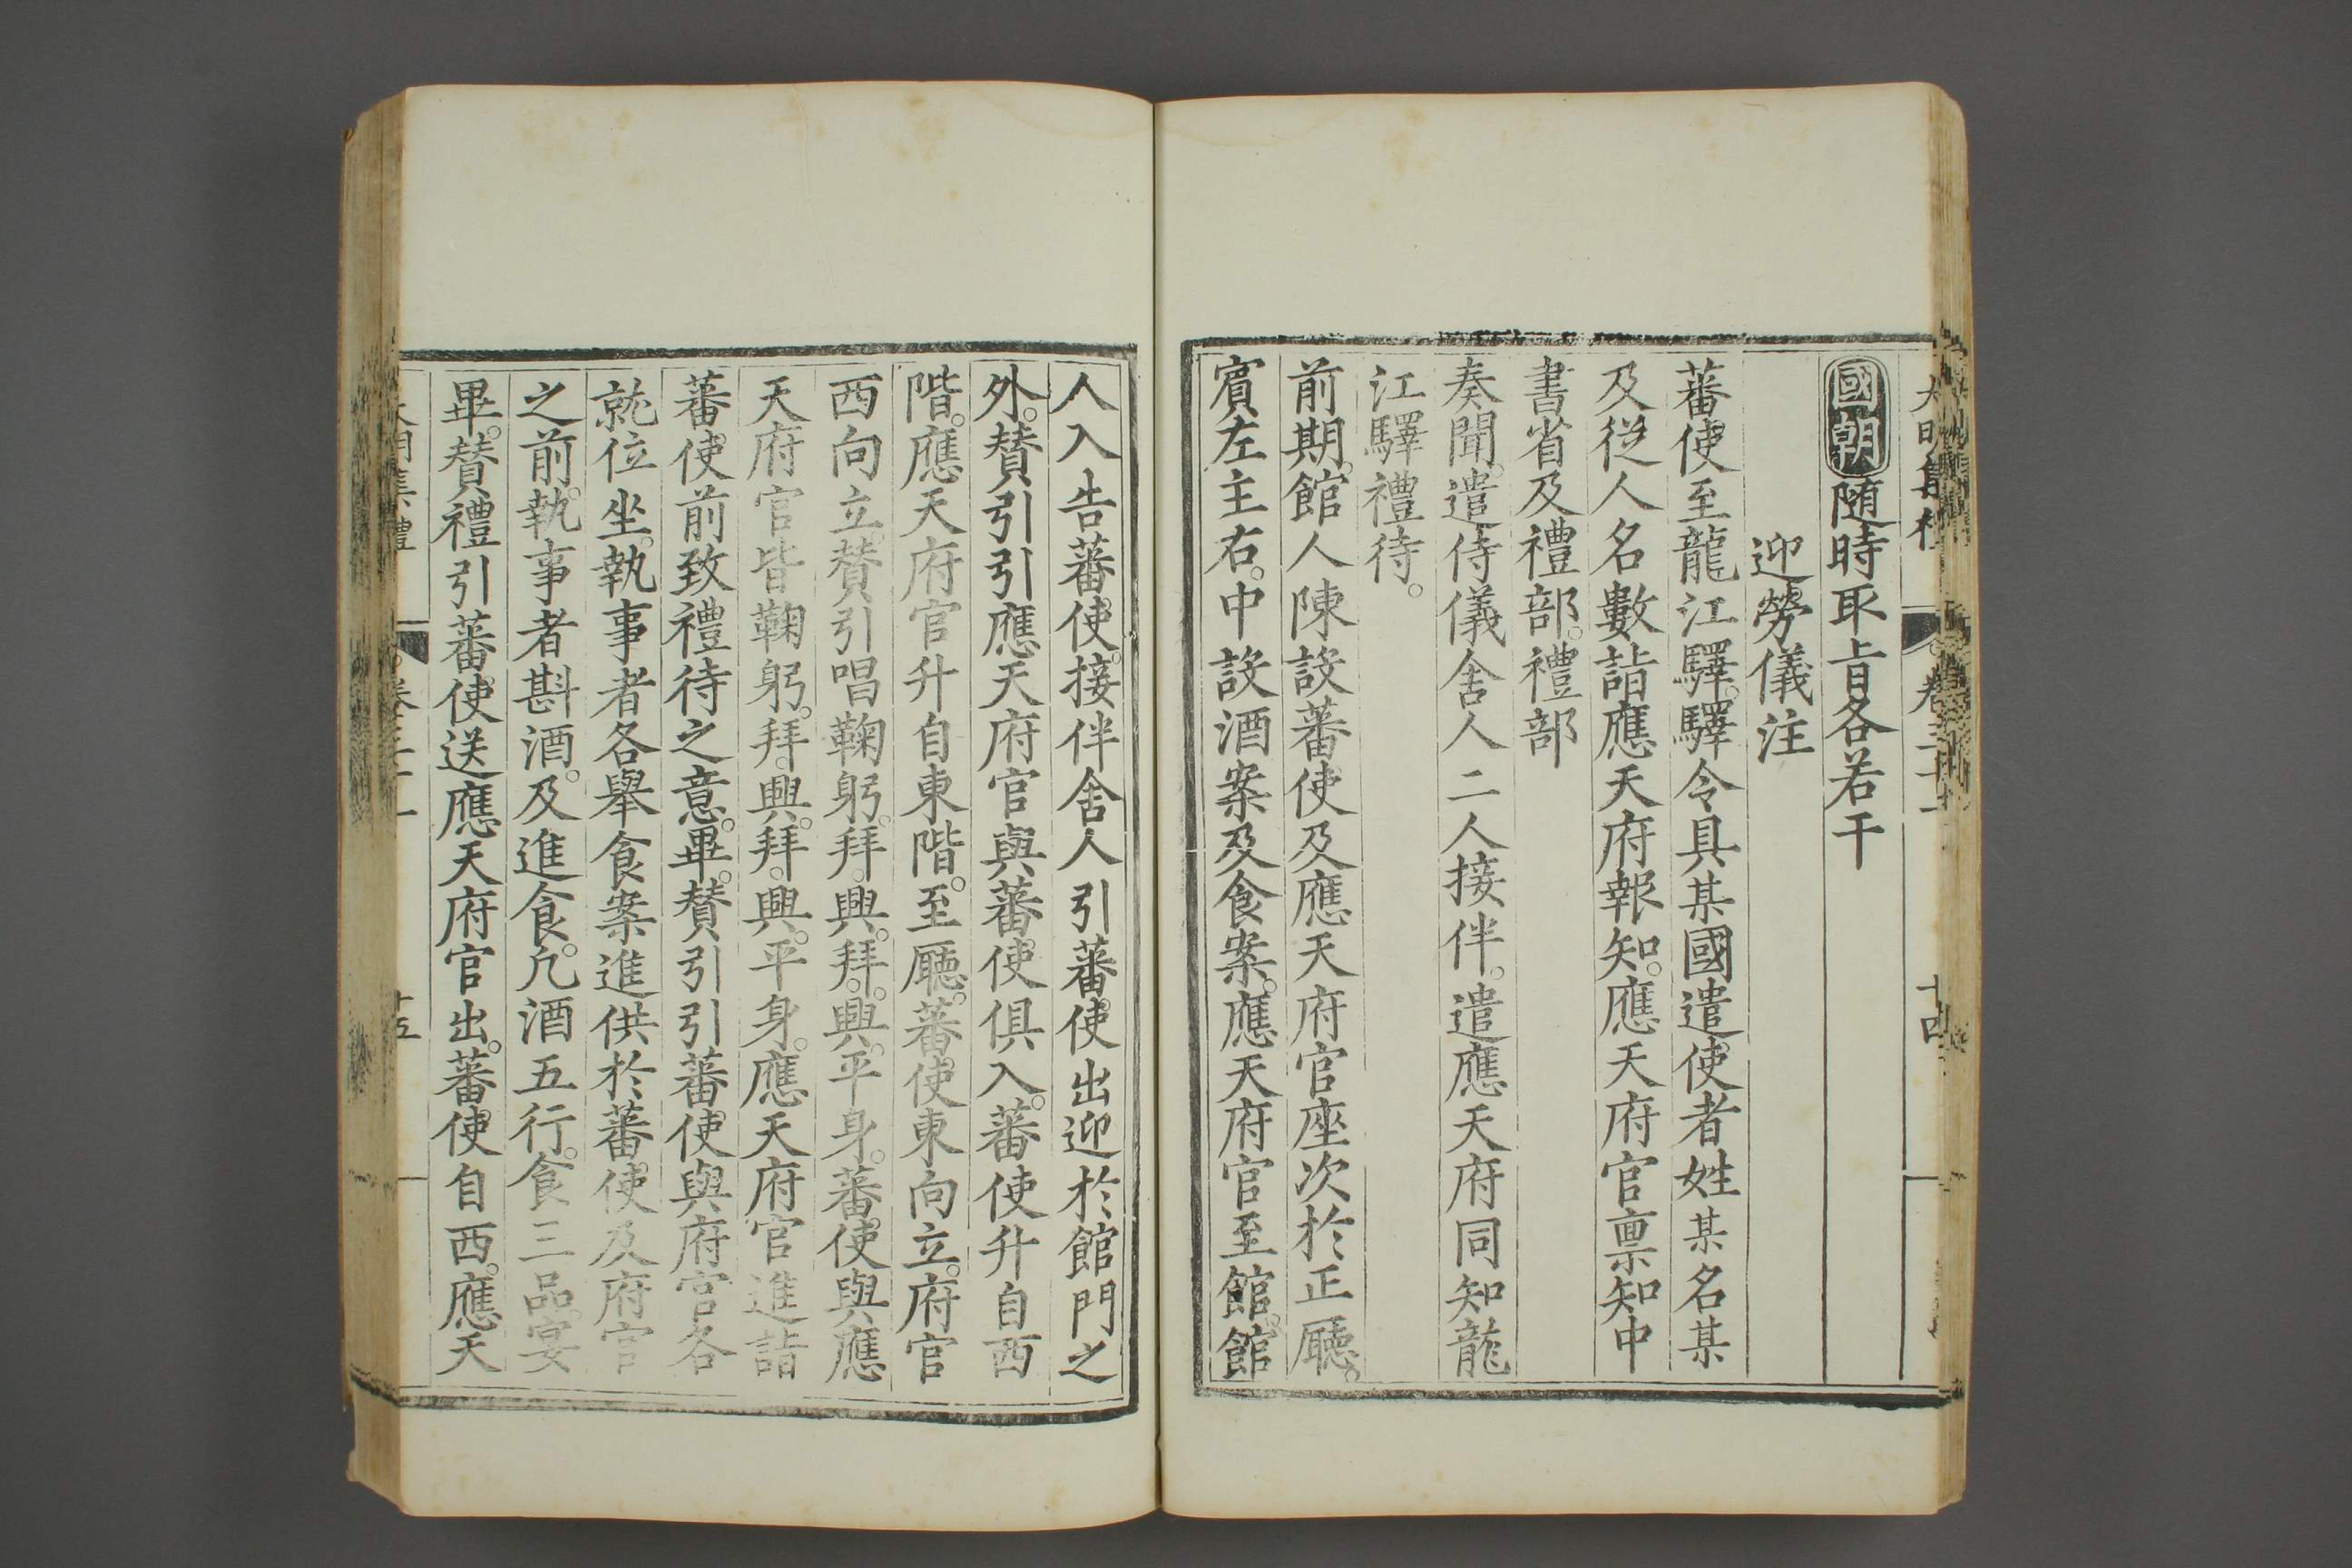 大明集禮 卷三十一 十四
國朝隨時取旨各若干
迎勞儀注
蕃使至龍江驛。驛令具某國遣使者姓某名某
及從人名數詣應天府報知。應天府官稟知中
書省及禮部。禮部
奏聞。遣侍儀舍人二人接伴。遣應天府同知龍
江驛禮待。
前期。館人陳設蕃使及應天府官座次於正廳。
賓左主右。中設酒案及食案。應天府官至館。館
人入告蕃使。接伴舍人引蕃使出迎於館門之
外。贊引引應天府官與蕃使俱入。蕃使升自西
階。應天府官升自東階。至廳。蕃使東向立。府官
西向立。贊引唱鞠躬。拜。興。拜。興。平身。蕃使與應
天府官皆鞠躬。拜。興。拜。興。平身。應天府官進詣
蕃使前致禮待之意。畢。贊引引蕃使與府官各
就位坐。執事者各舉食案進供於蕃使及府官
之前。執事者斟酒。及進食。凢酒五行。食三品。宴
畢。贊禮引蕃使送應天府官出。蕃使自西。應天
大明集禮 卷三十一 十五